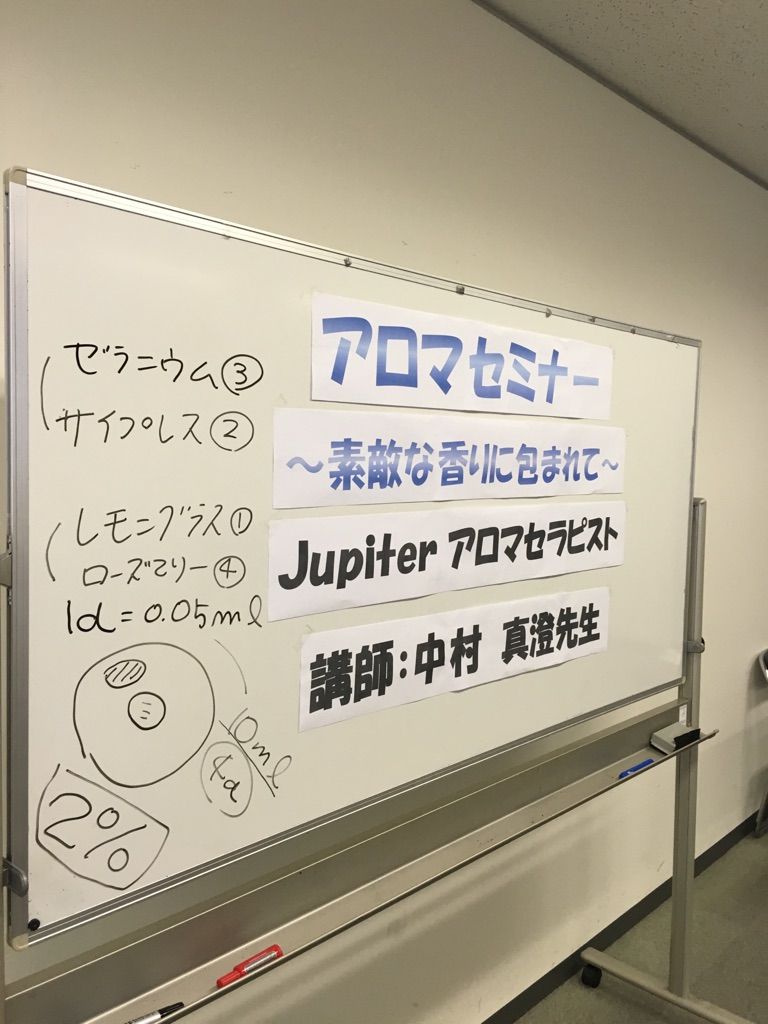 アロマセミナー
～素敵な香りに包まれて～
Jupiter アロマセラピスト
講師:中村 真澄先生
ゼラニウム③
サイプレス②
レモングラス①
ローズマリー④
1d=0.05ml
10ml
4d
2%